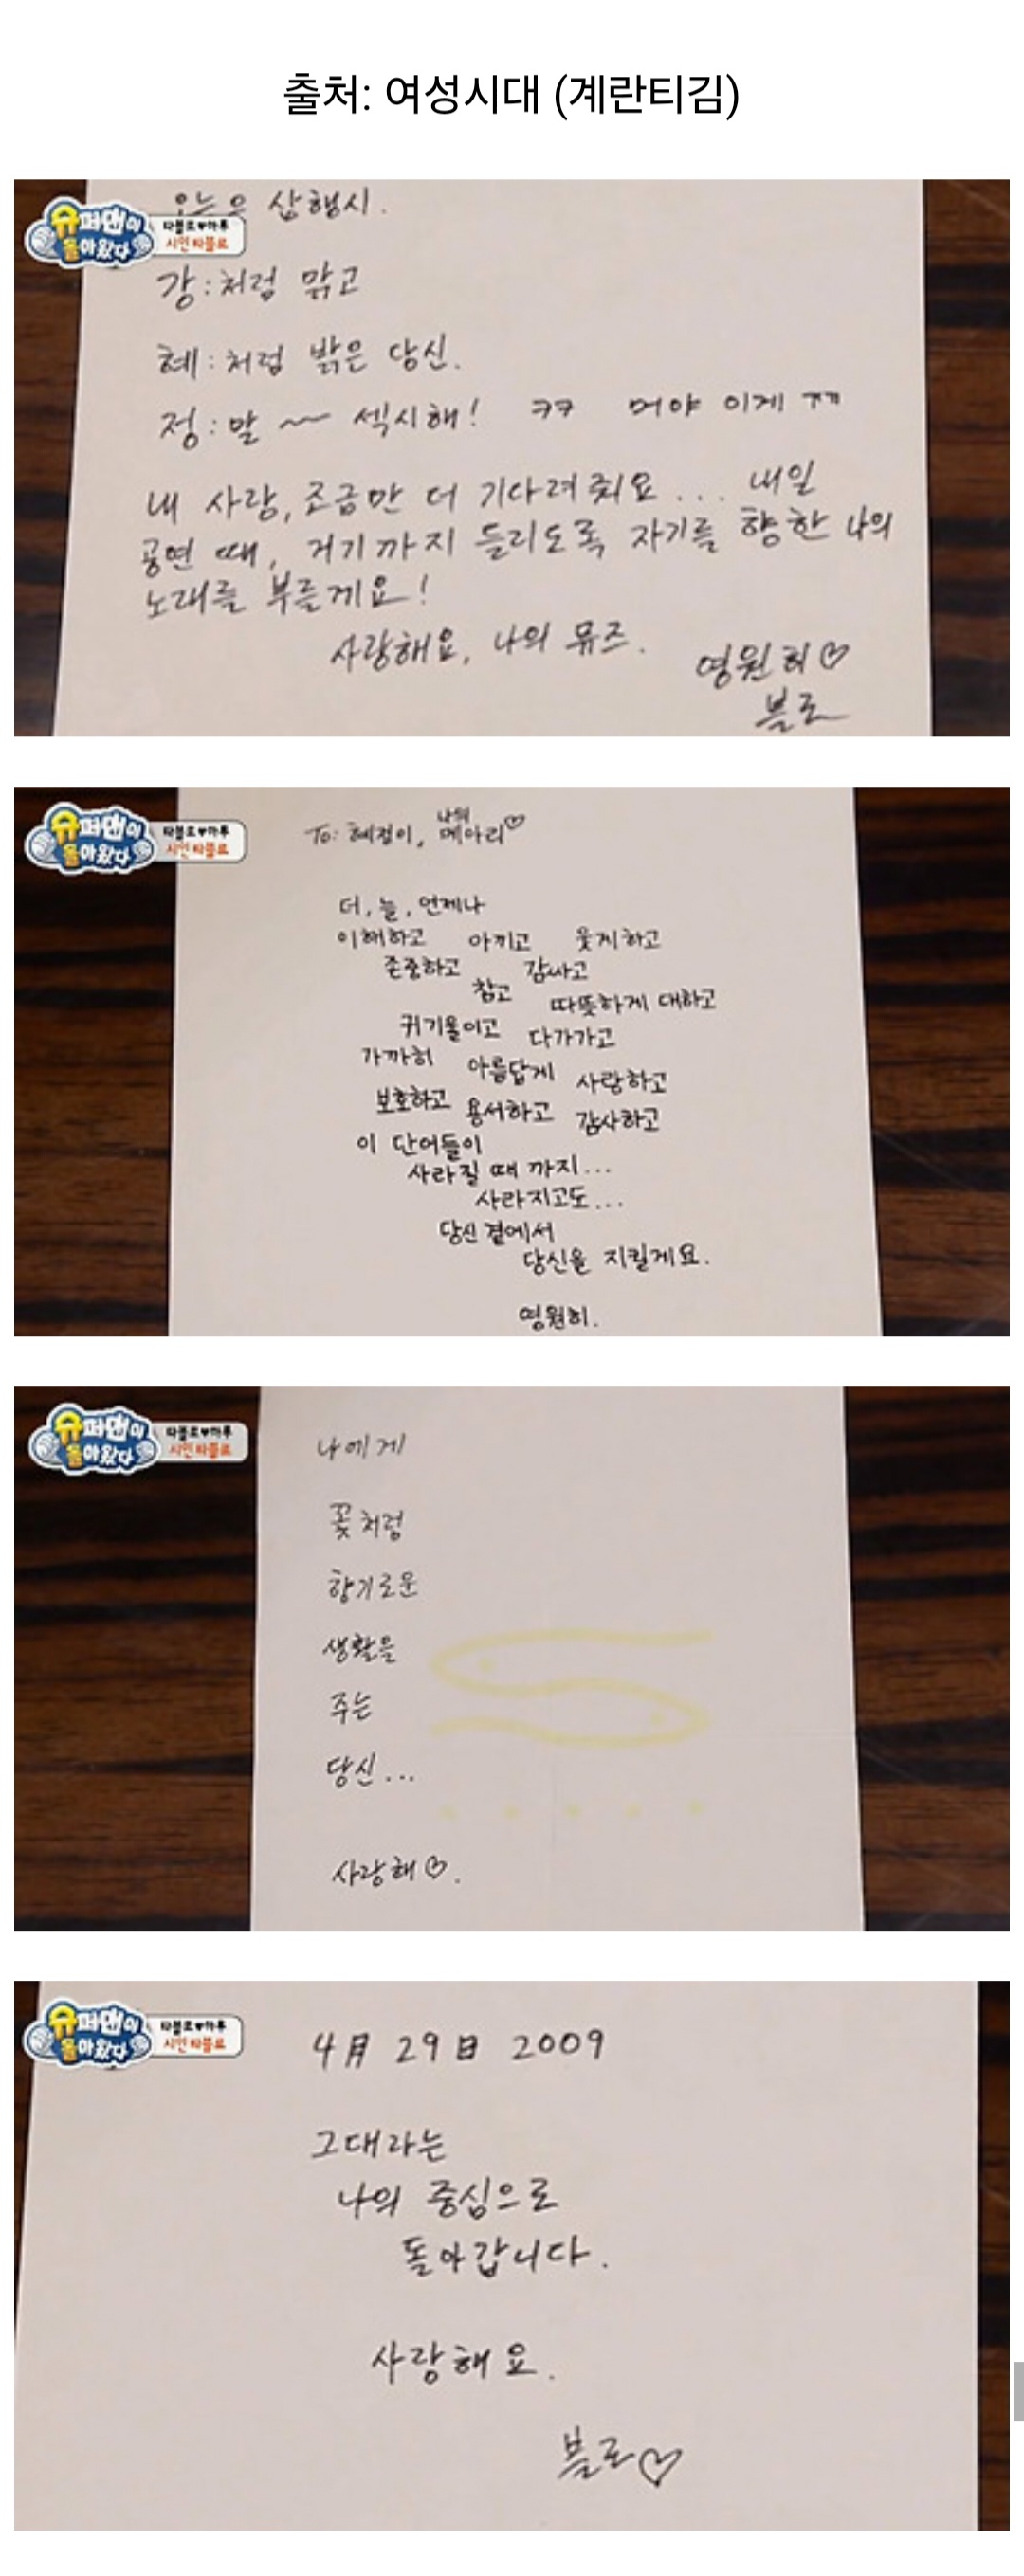 출처: 여성시대 (계란티김)
슈퍼맨이
돌아왔다
타블로♥하루
시인 타블로
오늘은 삼행시.
강:처럼 맑고
혜:처럼 밝은 당신.
정:말 ~~ 섹시해! ㅋㅋ 머야 이게 ㅠㅠ
내 사랑, 조금만 더 기다려줘요... 내일
공연 때, 거기까지 들리도록 자기를 향한 나의
노래를 부를게요!
사랑해요, 나의 뮤즈.
영원히♡
블로
슈퍼맨이
돌아왔다
타블로♥하루
시인 타블로
To: 혜정이, 나의 메아리♡
더, 늘, 언제나
이해하고 아끼고 웃게하고
존중하고 감싸고
참고 따뜻하게 대하고
귀기울이고 다가가고
가까히 아름답게 사랑하고
보호하고 용서하고 감사하고
이 단어들이
사라질 때 까지...
사라지고도...
당신 곁에서
당신을 지킬게요.
영원히.
슈퍼맨이
돌아왔다
타블로♥하루
시인 타블로
나에게
꽃처럼
향기로운
생활을
주는
당신...
사랑해♡.
슈퍼맨이
돌아왔다
타블로♥하루
시인 타블로
4月 29日 2009
그대라는
나의 중심으로
돌아갑니다.
사랑해요.
블로♡